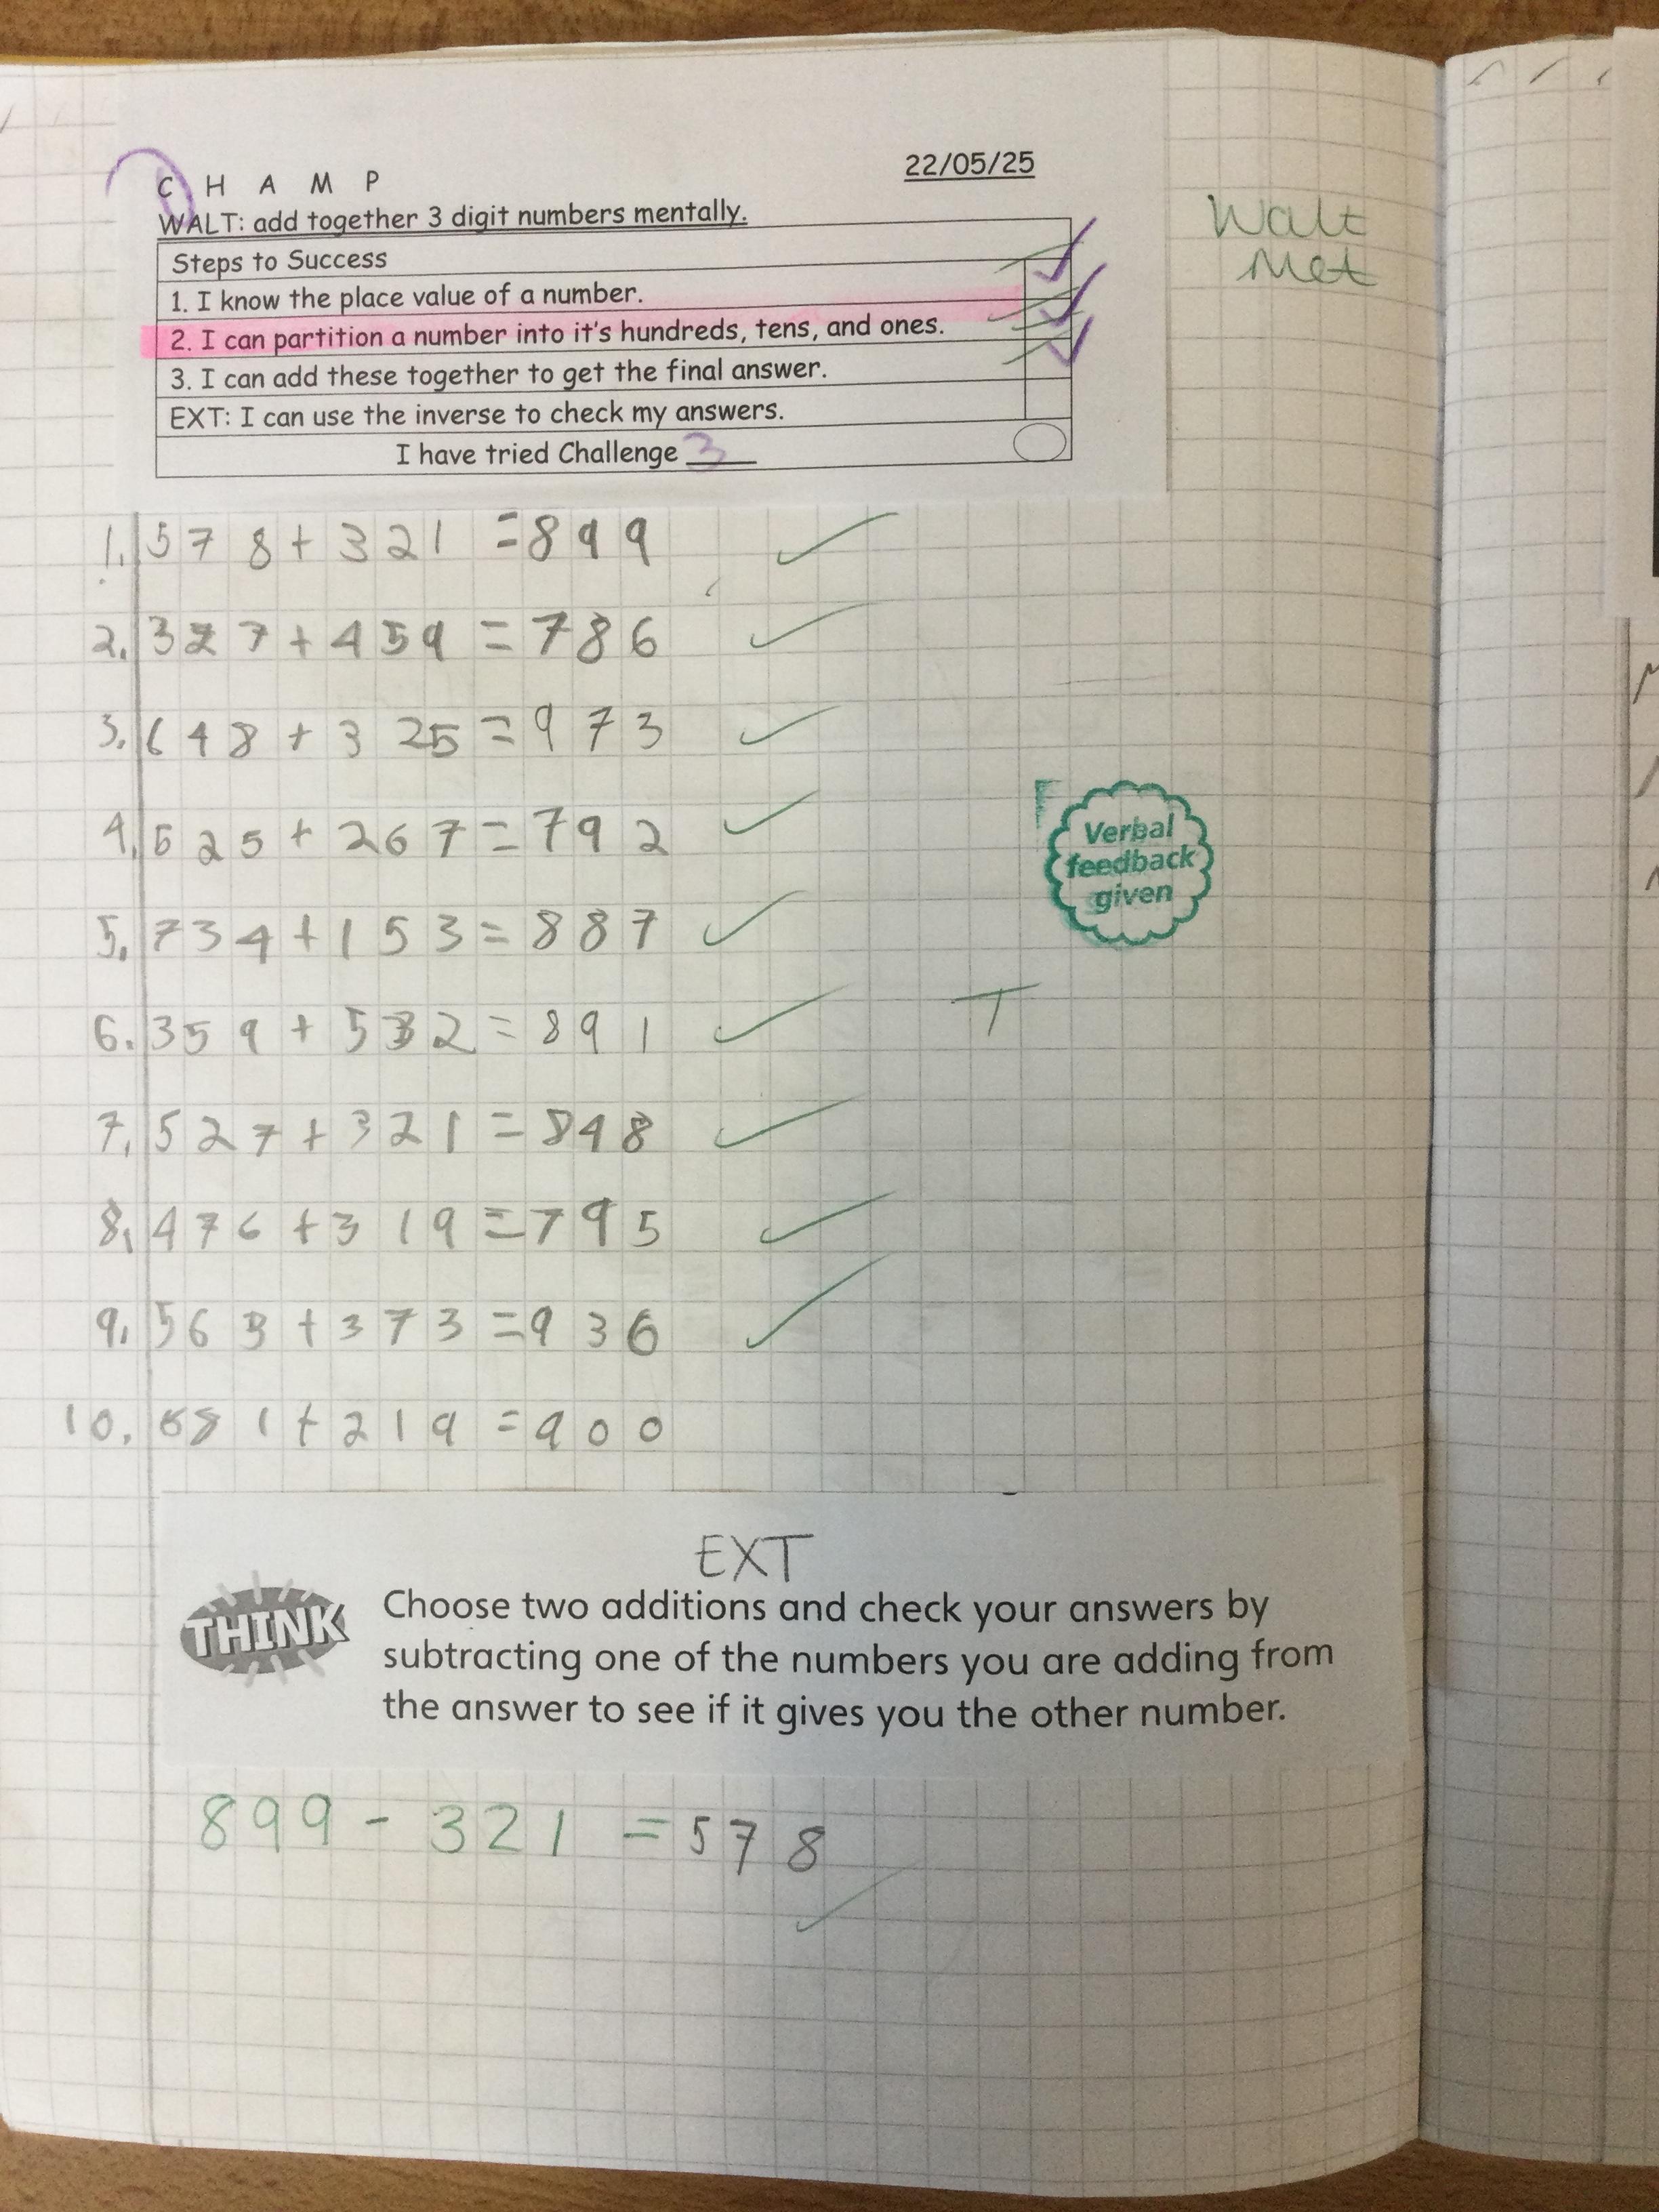 C H A M P
22/05/25
WALT: add together 3 digit numbers mentally.
Walt
Met
Steps to Success
1. I know the place value of a number.
2. I can partition a number into it's hundreds, tens, and ones.
3. I can add these together to get the final answer.
EXT: I can use the inverse to check my answers.
I have tried Challenge 3
1. 578 + 321 = 899
2. 327 + 459 = 786
3. 648 + 325 = 973
4. 525 + 267 = 792
Verbal
feedback
given
5. 734 + 153 = 887
T
6. 359 + 532 = 891
7. 527 + 321 = 848
8. 476 + 319 = 795
9. 563 + 373 = 936
10. 681 + 219 = 900
EXT
THINK
Choose two additions and check your answers by
subtracting one of the numbers you are adding from
the answer to see if it gives you the other number.
899 - 321 = 578